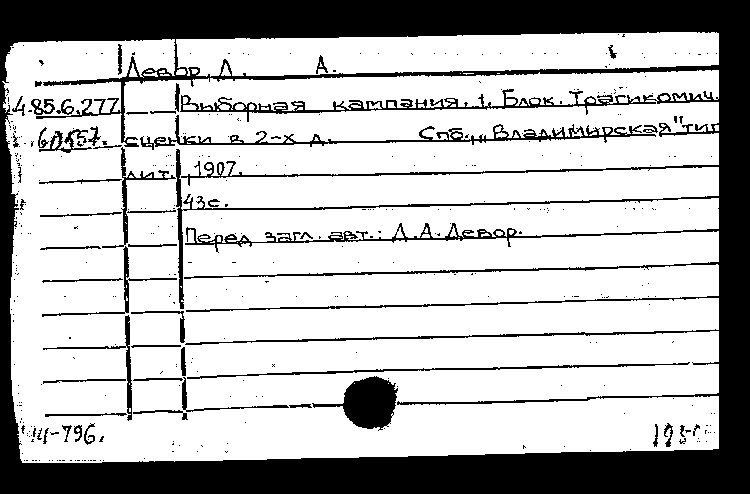 Девор, Д. А.
4.85.6.277 Выборная кампания. 1. Блок. Трагикомич.
сценки в 2-х д. Спб., „Владимирская" тип
лит., 1907.
43с.
Перед загл. авт.: Д.А. Девор.
14-796.